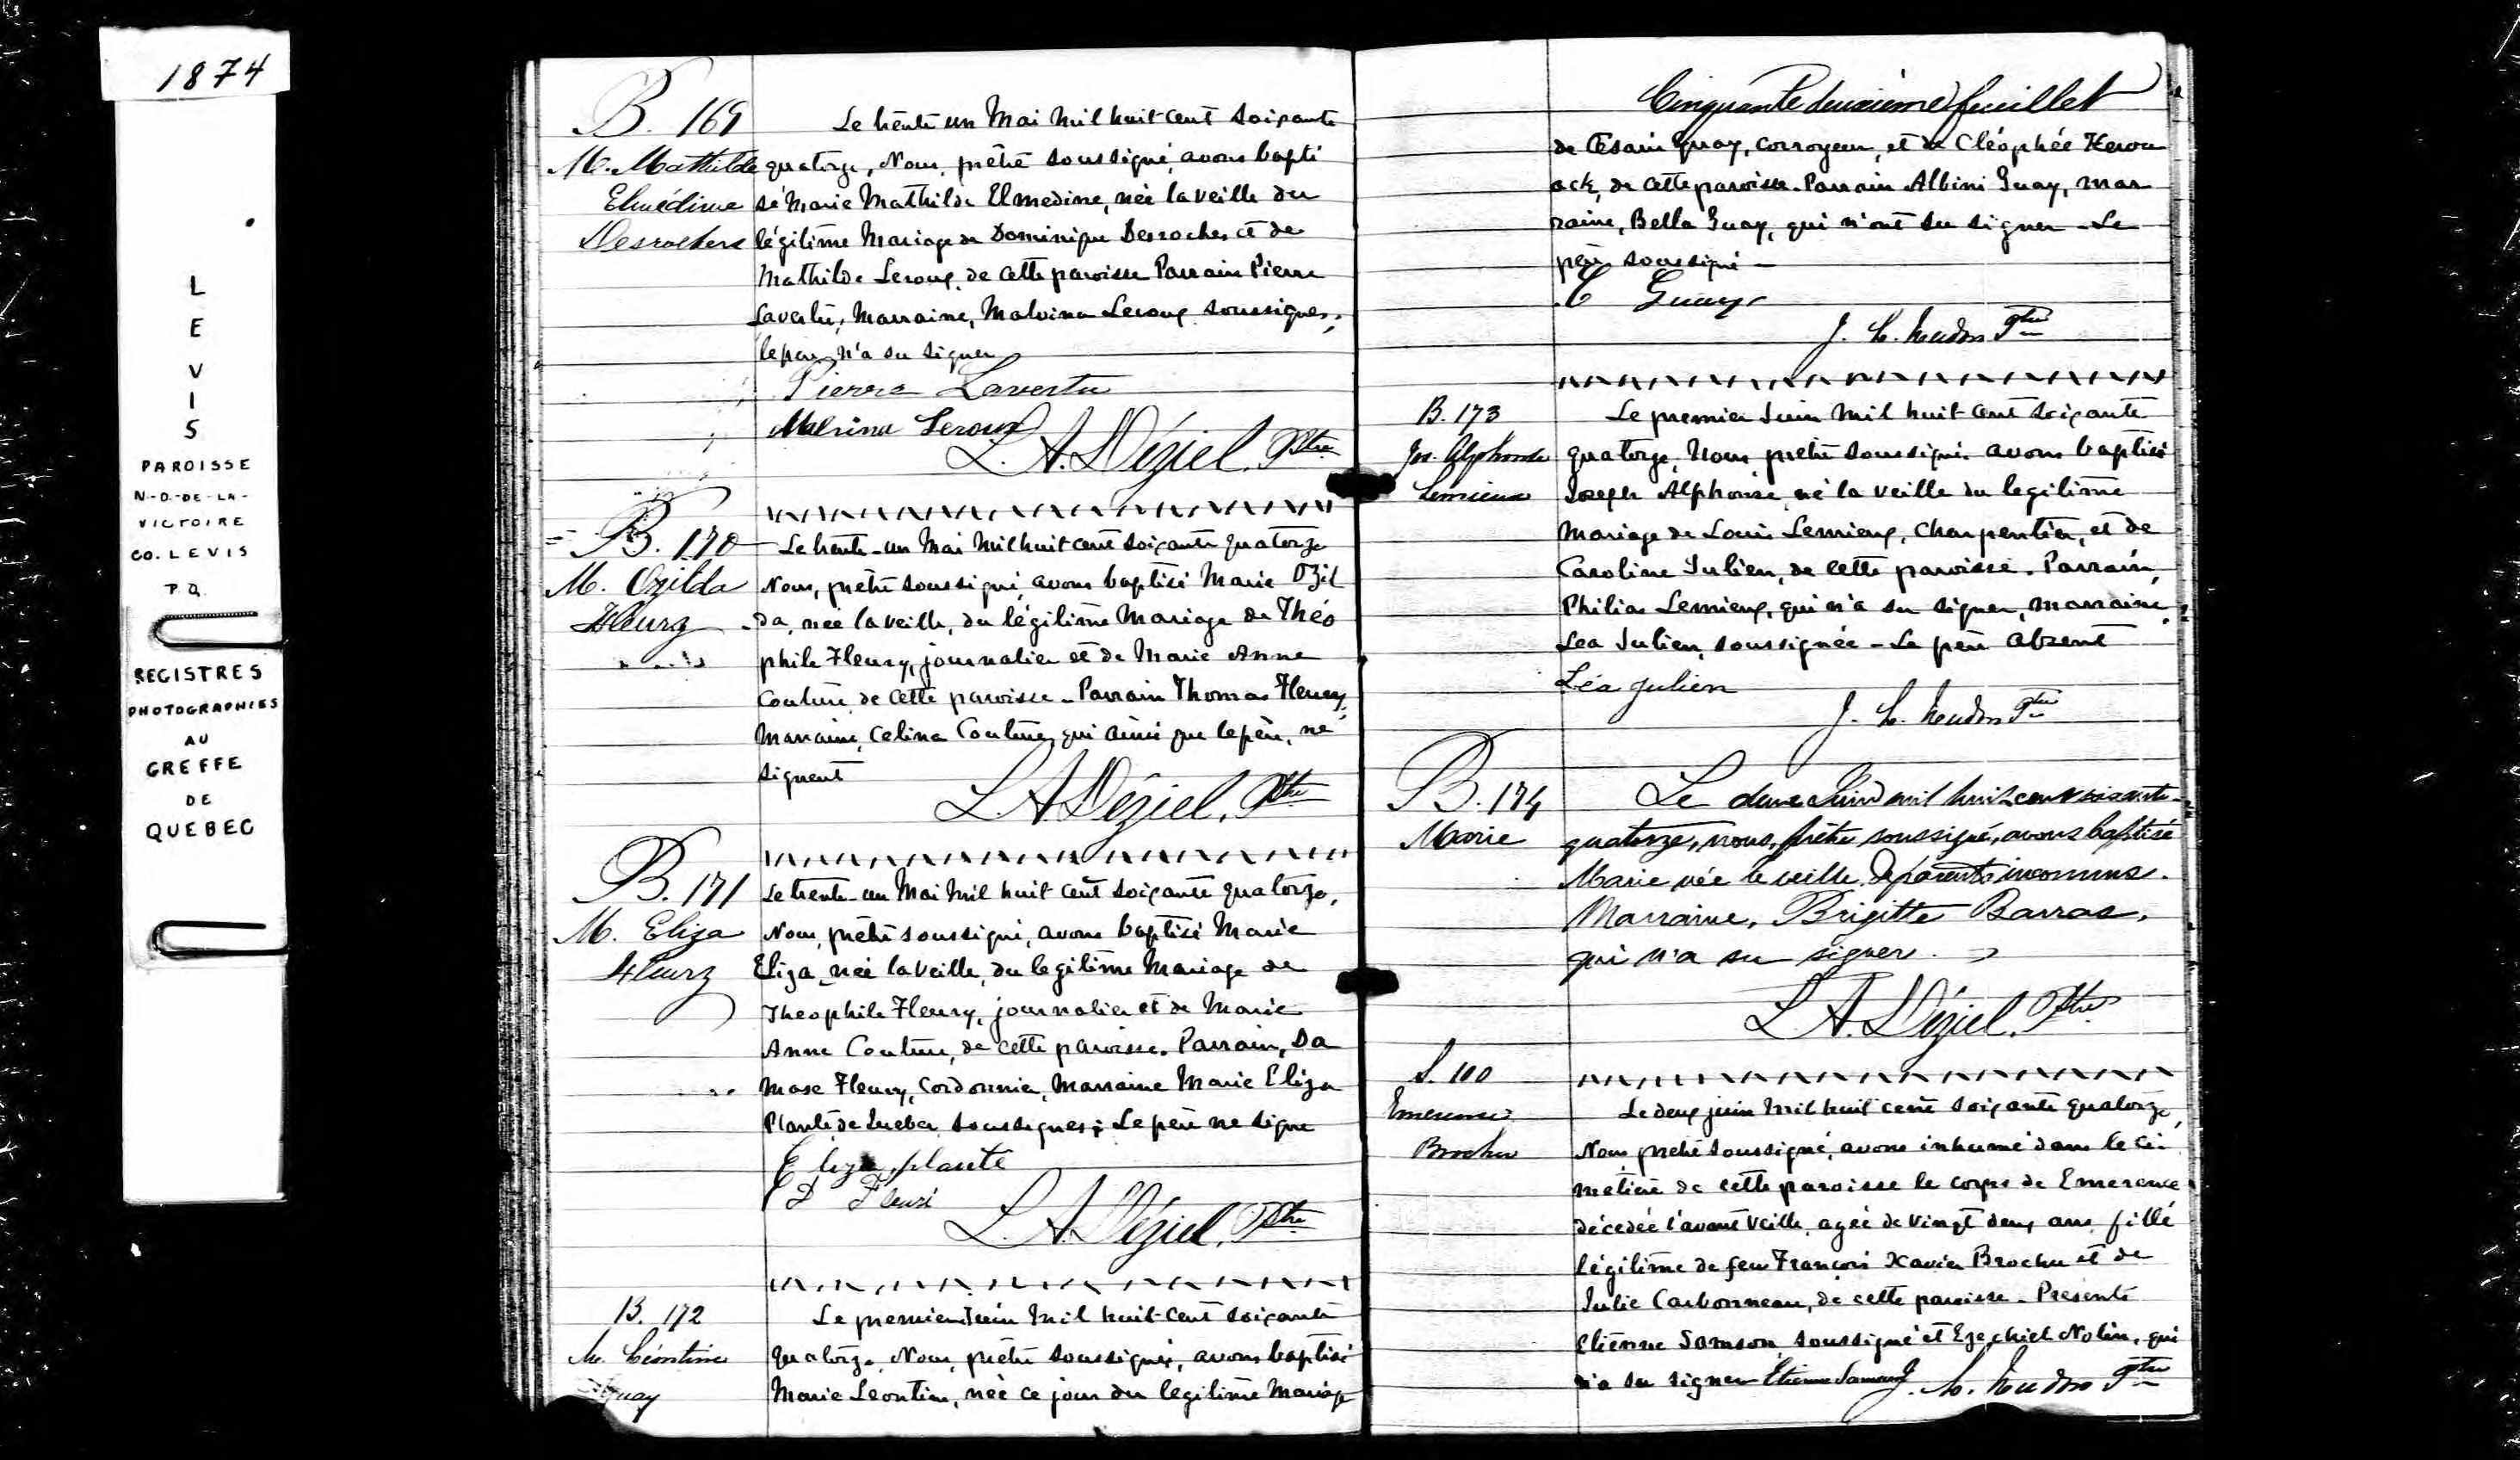 1874
L
E
V
I
S
PAROISSE
N.-D.-DE-LA-
VICTOIRE
CO. LEVIS
P.Q.
REGISTRES
PHOTOGRAPHIES
AU
GREFFE
DE
QUEBEC
B. 169
M. Mathilde
Elmédine
Desrochers
Le trente un Mai mil huit cent soixante
quatorze, Nous, prêtre soussigné, avons bapti
sé Marie Mathilde Elmedine, née la veille du
légitime Mariage de Dominique Desroches et de
Mathilde Leroux, de cette paroisse Parrain Pierre
Lavertu, Marraine, Malvina Leroux soussignés,
le père n'a su signer
Pierre Lavertu
Malvina Leroux
L. A. Déziel, Ptre
B. 170
M. Ozilda
Fleury
Le trente-un Mai mil huit cent soixante quatorze
Nous, prêtre soussigné, avons baptisé Marie Ozil
da, née la veille, du légitime Mariage de Théo
phile Fleury, journalier et de Marie Anne
Couture de cette paroisse - Parrain Thomas Fleury,
Marraine, Celina Couture, qui ainsi que le père, ne
signent
L A Déziel, Ptre
B. 171
M. Eliza
Fleury
Le trente-un Mai mil huit cent soixante quatorze,
Nous, prêtre soussigné, avons baptisé Marie
Eliza, née la veille, du legitime Mariage de
Theophile Fleury, journalier et de Marie
Anne Couture, de cette paroisse. Parrain, Da
mase Fleury, Cordonnier, Marraine Marie Eliza
Plante de Quebec soussignés; Le père ne signe
Eliza plante
D Fleuri
L. A. Déziel, Ptre
B. 172
M. Léontine
Guay
Le premier Juin mil huit-cent soixante
quatorze, Nous, prêtre soussigné, avons baptisé
Marie Leontine, née ce jour du legitime Mariage
Cinquante deuxième feuillet
de Césaire Guay, corroyeur, et de Cléophée Kerou
ack, de cette paroisse. Parrain Albini Guay, mar
raine, Bella Guay, qui n'ont su signer - Le
père soussigné -
C Guay
J. H. Hudon Ptre
B. 173
Jos. Alphonse
Lemieux
Le premier Juin mil huit cent soixante
quatorze, Nous, prêtre soussigné avons baptisé
Joseph Alphonse, né la veille du legitime
mariage de Louis Lemieux, charpentier, et de
Caroline Julien, de cette paroisse. Parrain,
Philias Lemieux, qui n'a su signer, marraine,
Lea Julien, soussignée - Le père absent
Léa Julien
J. H. Hudon Ptre
B. 174
Marie
Le deux Juin mil huit cent soixante-
quatorze, nous, prêtre soussigné, avons baptisé
Marie née la veille de parents inconnus.
Marraine, Brigitte Barras,
qui n'a su signer.
L A. Déziel, Ptre
S. 100
Emerence
Brochu
Le deux juin mil huit cent soixante quatorze,
Nous prêtre soussigné, avons inhumé dans le ci-
metière de cette paroisse le corps de Emerence
décedée l'avant veille, agée de vingt deux ans fille
légitime de feu François Xavier Brochu et de
Julie Carbonneau, de cette paroisse - Présents
Etienne Samson soussigné et Ezechiel Nolin, qui
n'a su signer Etienne Samson J. H. Hudon Ptre